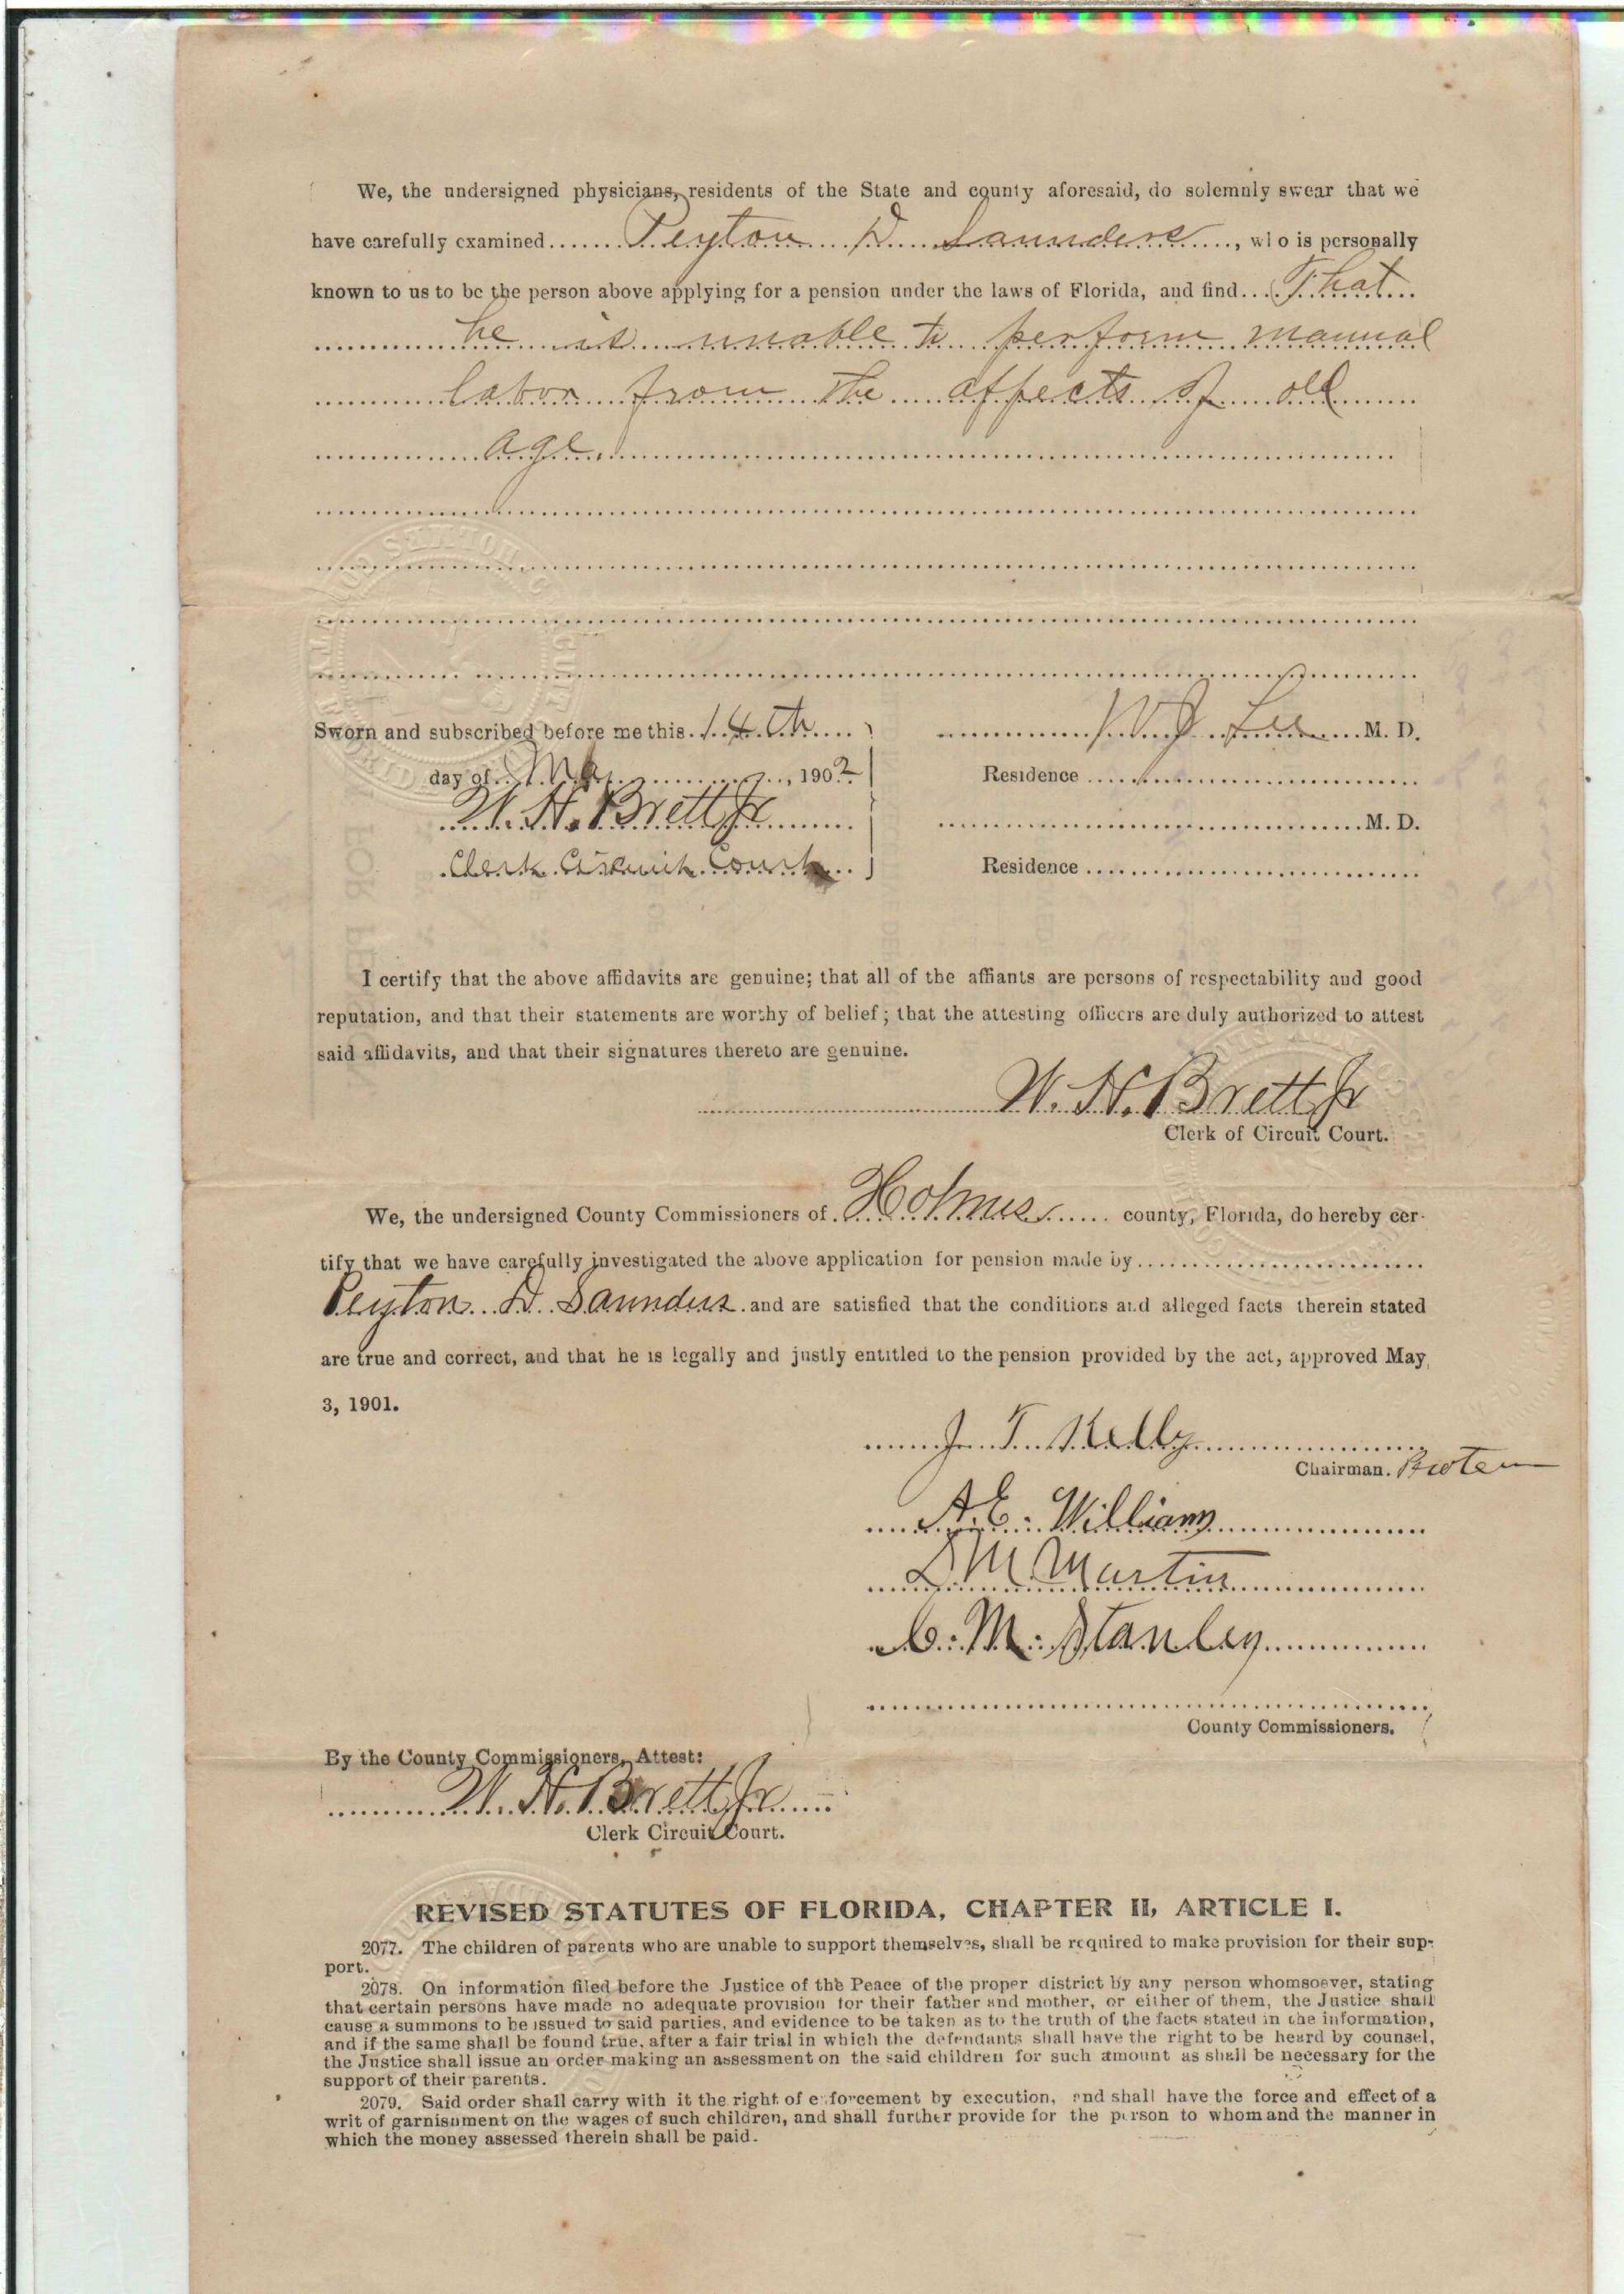 We, the undersigned physicians, residents of the State and county aforesaid, do solemnly swear that we
have carefully examined Peyton D Saunders, who is personally
known to us to be the person above applying for a pension under the laws of Florida, and find That
he is unable to perform manual
labor from the affects of old
age
Sworn and subscribed before me this 14th
day of May, 1902
W. H. Brett Jr
Clerk Circuit Court
W J Lee M. D.
Residence
M. D.
Residence
I certify that the above affidavits are genuine; that all of the affiants are persons of respectability and good
reputation, and that their statements are worthy of belief; that the attesting officers are duly authorized to attest
said affidavits, and that their signatures thereto are genuine.
W. H. Brett Jr
Clerk of Circuit Court.
We, the undersigned County Commissioners of Holmes county, Florida, do hereby cer-
tify that we have carefully investigated the above application for pension made by
Peyton D Saunders and are satisfied that the conditions and alleged facts therein stated
are true and correct, and that he is legally and justly entitled to the pension provided by the act, approved May
3, 1901.
J. T. Kelly
Chairman. Protem
A. E. Williams
D M Martin
C. M. Stanley
County Commissioners.
By the County Commissioners, Attest:
W. H. Brett Jr
Clerk Circuit Court.
REVISED STATUTES OF FLORIDA, CHAPTER II, ARTICLE I.
2077. The children of parents who are unable to support themselves, shall be required to make provision for their sup-
port.
2078. On information filed before the Justice of the Peace of the proper district by any person whomsoever, stating
that certain persons have made no adequate provision for their father and mother, or either of them, the Justice shall
cause a summons to be issued to said parties, and evidence to be taken as to the truth of the facts stated in the information,
and if the same shall be found true, after a fair trial in which the defendants shall have the right to be heard by counsel,
the Justice shall issue an order making an assessment on the said children for such amount as shall be necessary for the
support of their parents.
2079. Said order shall carry with it the right of enforcement by execution, and shall have the force and effect of a
writ of garnishment on the wages of such children, and shall further provide for the person to whom and the manner in
which the money assessed therein shall be paid.